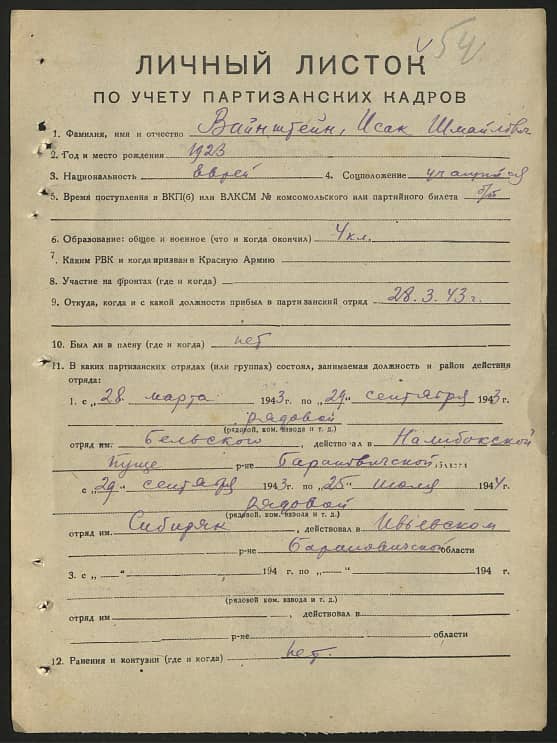 v 54
ЛИЧНЫЙ ЛИСТОК
ПО УЧЕТУ ПАРТИЗАНСКИХ КАДРОВ
1. Фамилия, имя и отчество Вайнштейн, Исак Шмайлович
2. Год и место рождения 1923
3. Национальность еврей 4. Соцположение учащийся
5. Время поступления в ВКП(б) или ВЛКСМ № комсомольского или партийного билета б/п
6. Образование: общее и военное (что и когда окончил) 4 кл.
7. Каким РВК и когда призван в Красную Армию
8. Участие на фронтах (где и когда)
9. Откуда, когда и с какой должности прибыл в партизанский отряд 28.3.43 г.
10. Был ли в плену (где и когда) нет
11. В каких партизанских отрядах (или группах) состоял, занимаемая должность и район действия
отряда:
1. с „28 марта 1943 г. по „29" сентября 1943 г.
рядовой
(рядовой, ком. взвода и т. д.)
отряд им. Бельского, действовал в Налибокской
пуще р-не Барановичской области
с „29" сентября 1943 г. по „25" июля 1944 г.
рядовой
(рядовой, ком. взвода и т. д.)
отряд им. Сибиряк, действовал в Ивьевском
р-не Барановичской области
3. с „—" 194 г. по „—" 194 г.
(рядовой, ком. взвода и т. д.)
отряд им. , действовал в
р-не области
12. Ранения и контузии (где и когда) нет.